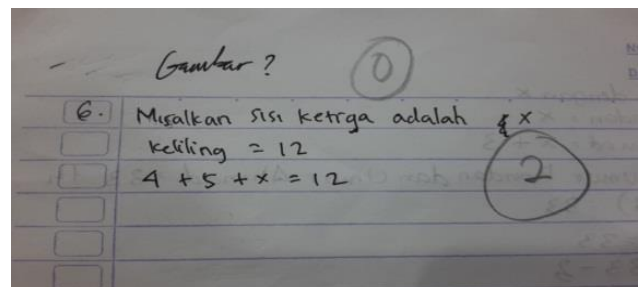 Gambar ? 0
6. Misalkan sisi ketrga adalah x
keliling = 12
4 + 5 + x = 12
2